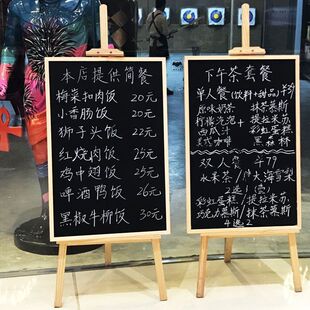 本店提供简餐
梅菜扣肉饭 20元
小香肠饭 20元
狮子头饭 22元
红烧肉饭 25元
鸡中翅饭 25元
啤酒鸭饭 26元
黑椒牛柳饭 30元
下午茶套餐
单人餐(饮料+甜品)
原味奶茶 抹茶慕斯
柠檬泡泡 + 提拉米苏
西瓜汁 彩虹蛋糕
美式咖啡 黑森林
双人餐 ¥79
水果茶/
2选1(壶)
彩虹蛋糕/提拉米苏
巧克力慕斯/抹茶慕斯
4选2